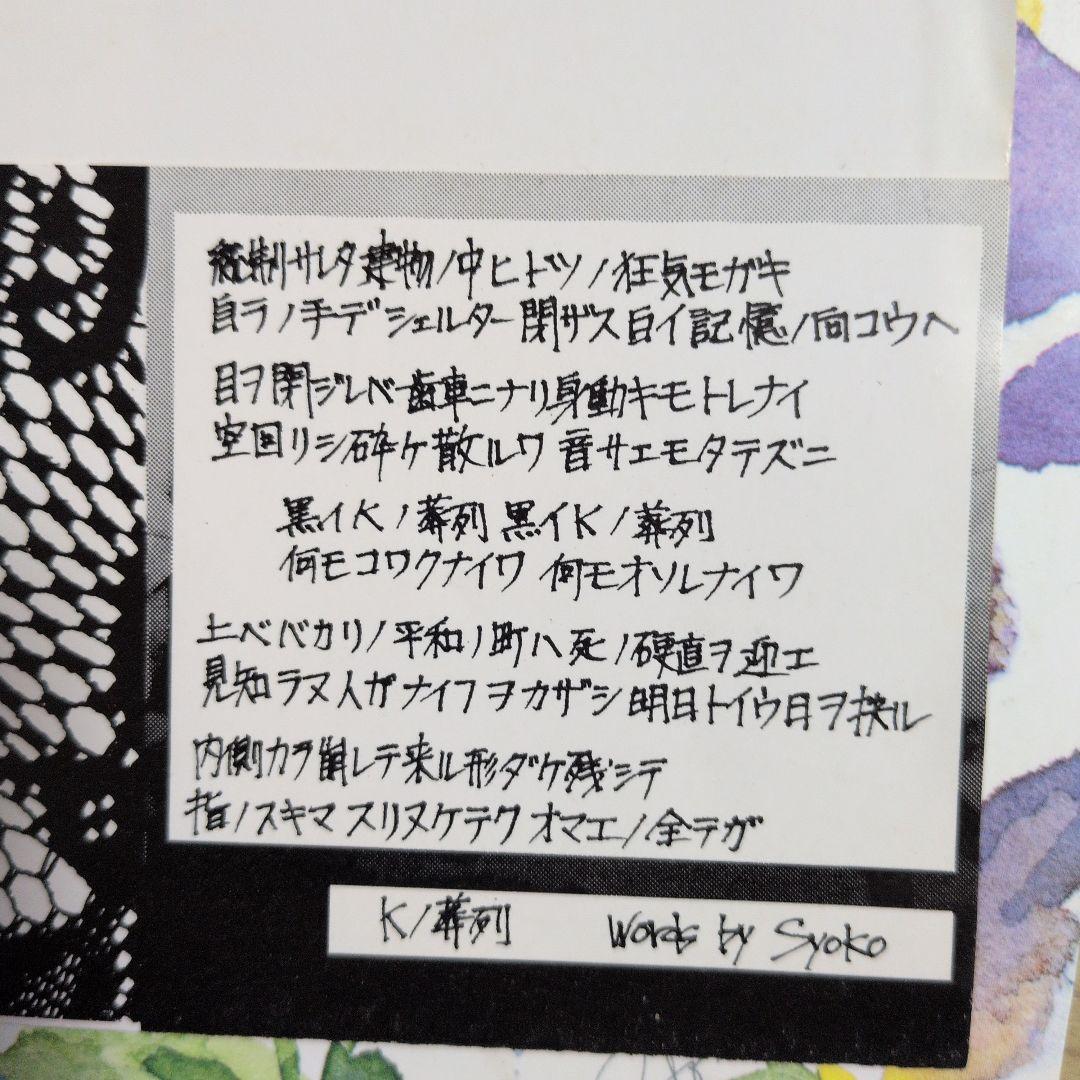 統制サレタ建物ノ中ヒドツノ狂気モガキ
自ラノ手デシェルター閉ザス白イ記憶ノ向コウヘ
目ヲ閉ジレベ歯車ニナリ身動キモトレナイ
空回リシ砕ケ散ルワ 音サエモタテズニ
黒イKノ葬列 黒イKノ葬列
何モコワクナイワ 何モオソレナイワ
上ベバカリノ平和ノ町ハ死ノ硬直ヲ迎エ
見知ラヌ人ガナイフヲカザシ明日トイウ日ヲ抉ル
内側カラ崩レテ来ル形ダケ残シテ
指ノスキマ スリヌケテク オマエノ全テガ
Kノ葬列 Words by Syoko